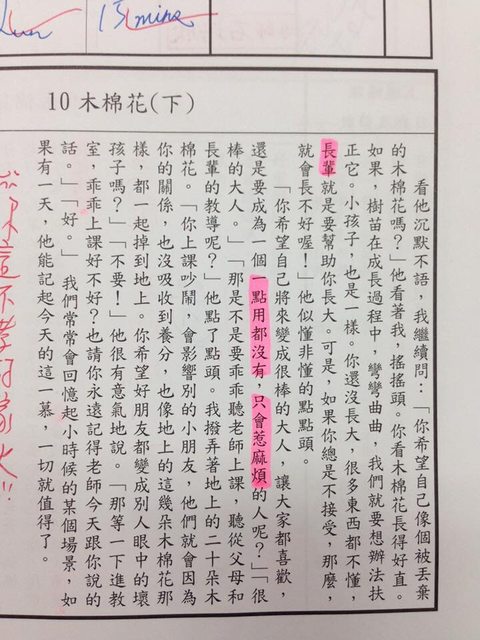 15 mins
10 木棉花(下)
看他沉默不語，我繼續問：「你希望自己像個被丟棄
的木棉花嗎？」他看著我，搖搖頭。你看木棉花長得好直。
如果，樹苗在成長過程中，彎彎曲曲，我們就要想辦法扶
正它。小孩子，也是一樣。你還沒長大，很多東西都不懂，
長輩就是要幫助你長大。可是，如果你總是不接受，那麼，
就會長不好喔！」他似懂非懂的點點頭。
「你希望自己將來變成很棒的大人，讓大家都喜歡，
還是要成為一個一點用都沒有，只會惹麻煩的人呢？」「很
棒的大人。」「那是不是要乖乖聽老師上課，聽從父母和
長輩的教導呢？」他點了點頭。我撥弄著地上的二十朵木
棉花。「你上課吵鬧，會影響別的小朋友，他們就會因為
你的關係，也沒吸收到養分，也像地上的這幾朵木棉花那
樣，都一起掉到地上。你希望好朋友都變成別人眼中的壞
孩子嗎？」「不要！」他很有意氣地說。「那等一下進教
室，乖乖上課好不好？也請你永遠記得老師今天跟你說的
話。」「好。」我們常常會回憶起小時候的某個場景，如
果有一天，他能記起今天的這一幕，一切就值得了。